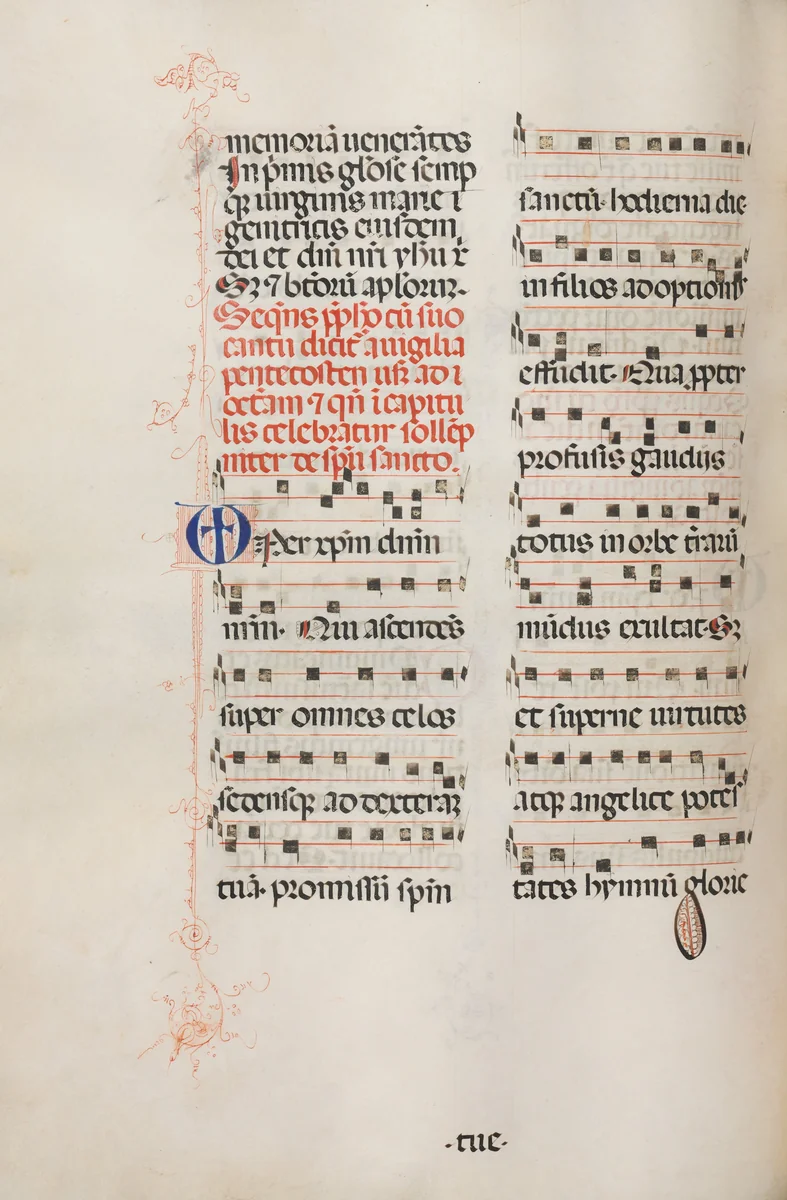 memoriā uenerātes
In p̄mis gl̄ose semp
q̨ uirginis marie ⁊
genitricis eiusdem
dei et dn̄i nr̄i yhū x̄
Sꝫ ⁊ btōrū apl̄orūꝫ.
Seqn̄s p̄pħo cū suo
cantu dicit̄ ī uigilia
pentecosten usꝫ ad ī
octam ⁊ qn̄ ī capitu
lis celebratur sollēp
niter de spū sancto.
Per xp̄m dn̄m
nr̄m. Qui ascendēs
super omnes celos
sedensq̨ ad dexterā
tuā. promissū sp̄m
sanctū. hodierna die
in filios adoptionis
effudit. Qua p̱pter
profusis gaudiis
totus in orbe tr̄arū
mūdus exultat. Sꝫ
et superne uirtutes
atq̨ angelice potes
tates hymnū glorie
·tue·